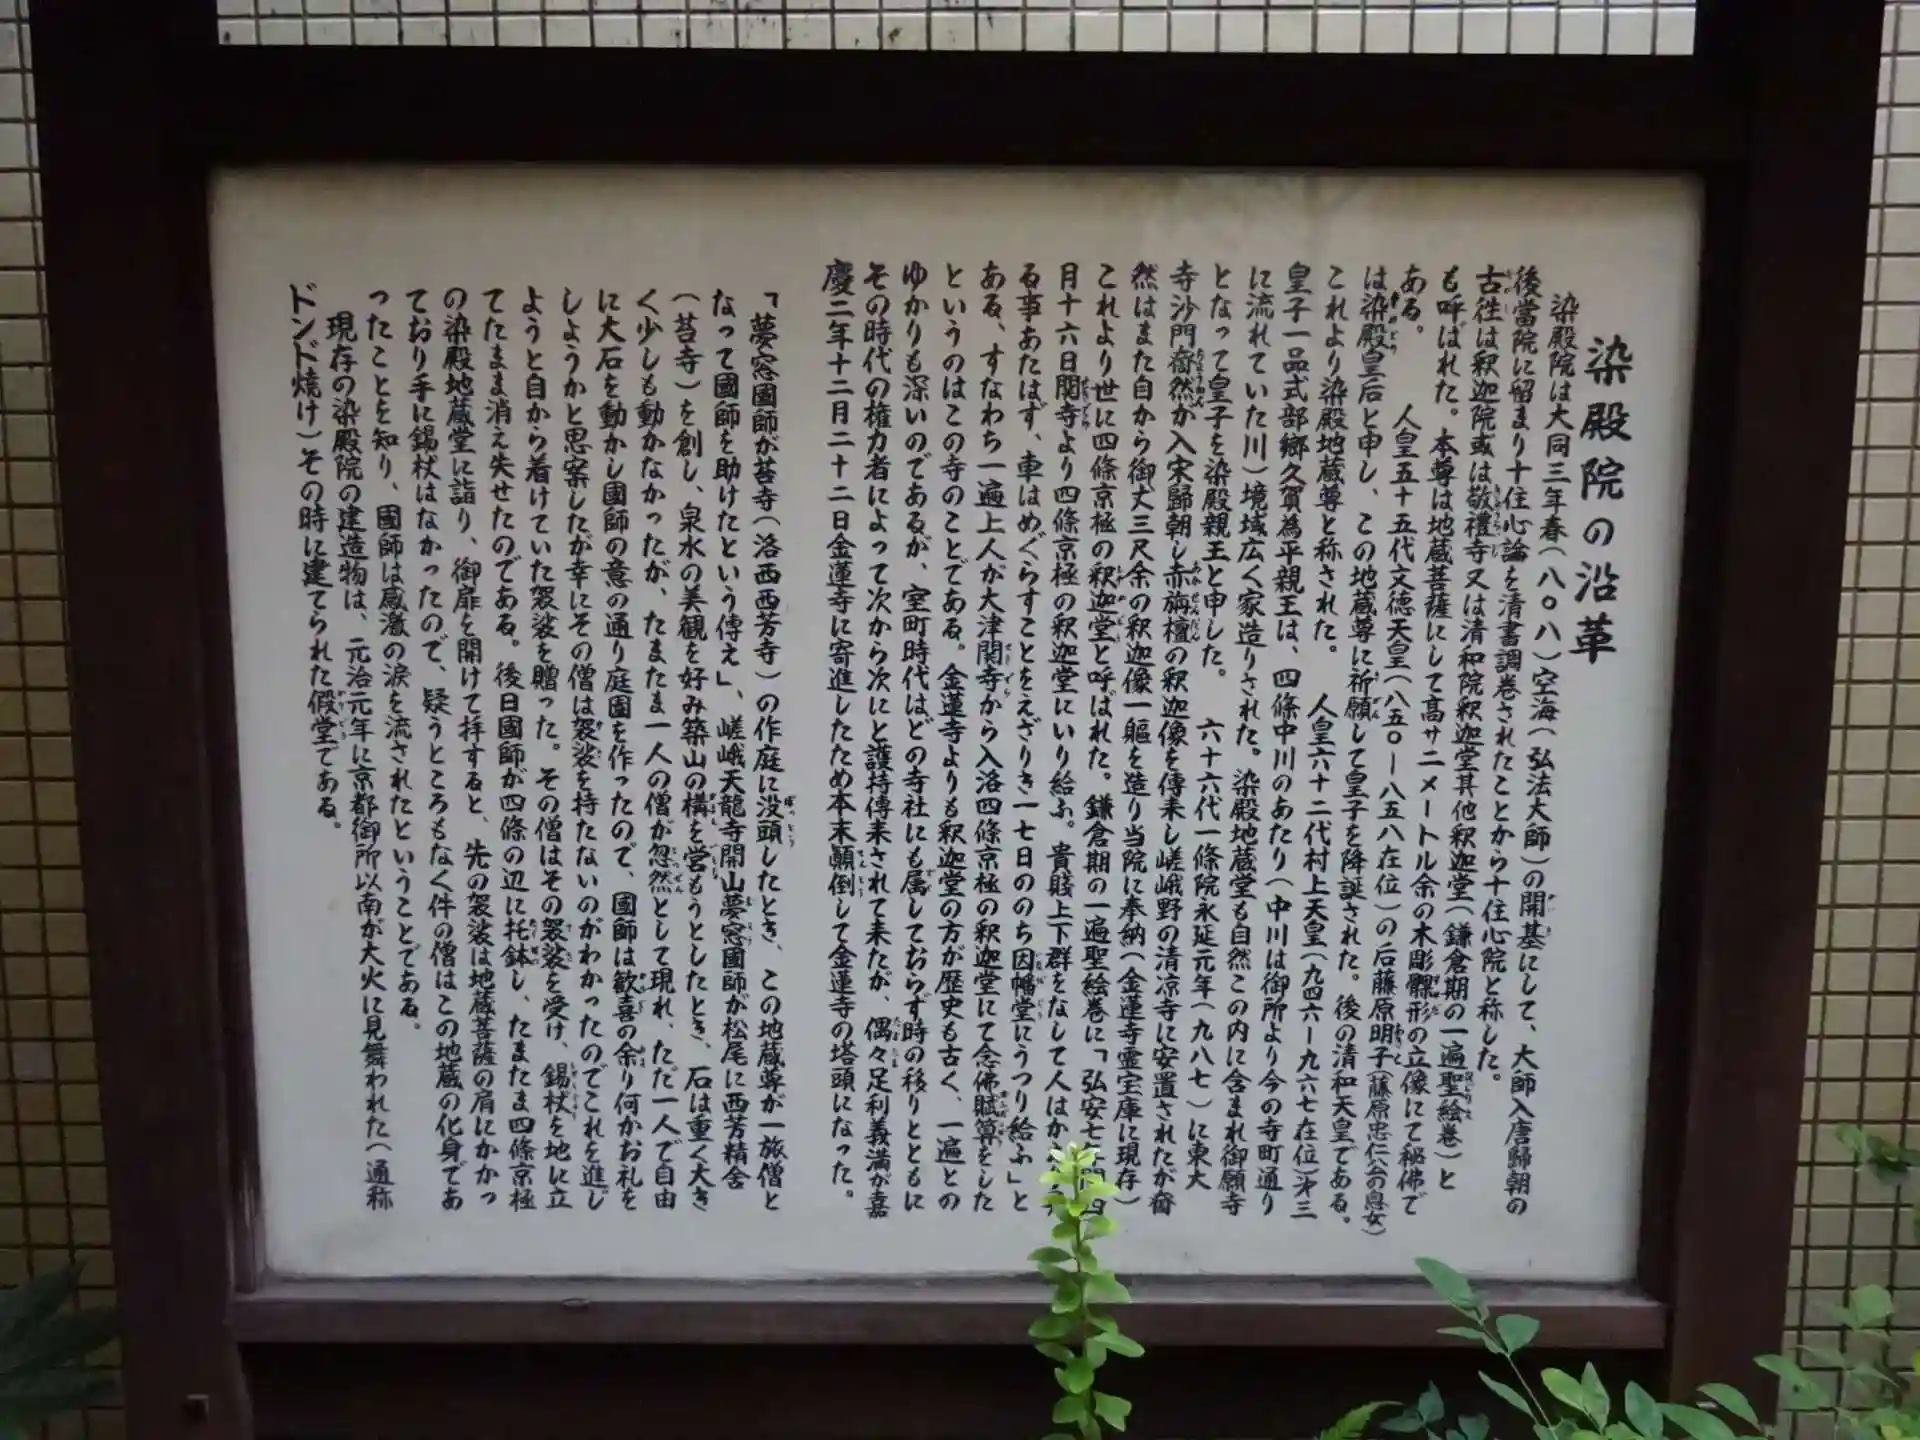 染殿院の沿革
染殿院は大同三年春(八〇八)空海(弘法大師)の開基にして、大師入唐歸朝の
後當院に留まり十住心論を清書調巻されたことから十住心院と称した。
古徃は釈迦院或は敬禮寺又は清和院釈迦堂其他釈迦堂(鎌倉期の一遍聖絵巻)と
も呼ばれた。本尊は地蔵菩薩にして高サ二メートル余の木彫髁形の立像にて秘佛で
ある。 人皇五十五代文徳天皇(八五〇ー八五八在位)の后藤原明子(藤原忠仁公の息女)
は染殿皇后と申し、この地蔵尊に祈願して皇子を降誕された。後の清和天皇である。
これより染殿地蔵尊と称された。 人皇六十二代村上天皇(九四六ー九六七在位)㐧三
皇子一品式部郷久賀為平親王は、四條中川のあたり(中川は御所より今の寺町通り
に流れていた川)境域広く家造りされた。染殿地蔵堂も自然この内に含まれ御願寺
となって皇子を染殿親王と申した。 六十六代一條院永延元年(九八七)に東大
寺沙門奝然が入宋歸朝し赤旃檀の釈迦像を傳来し嵯峨野の清凉寺に安置されたが奝
然はまた自から御丈三尺余の釈迦像一軀を造り当院に奉納(金蓮寺霊宝庫に現存)
これより世に四條京極の釈迦堂と呼ばれた。鎌倉期の一遍聖絵巻に「弘安七年閏四
月十六日関寺より四條京極の釈迦堂にいり給ふ。貴賤上下群をなして人はか
る事あたはず、車はめぐらすことをえざりき一七日ののち因幡堂にうつり給ふ」と
ある、すなわち一遍上人が大津関寺から入洛四條京極の釈迦堂にて念佛賦算をした
というのはこの寺のことである。金蓮寺よりも釈迦堂の方が歴史も古く、一遍との
ゆかりも深いのであるが、室町時代はどの寺社にも属しておらず時の移りとともに
その時代の権力者によって次から次にと護持傳来されて来たが、偶々足利義満が嘉
慶二年十二月二十二日金蓮寺に寄進したため本末顚倒して金蓮寺の塔頭になった。
「夢窓國師が苔寺(洛西西芳寺)の作庭に没頭したとき、この地蔵尊が一旅僧と
なって國師を助けたという傳え」、嵯峨天龍寺開山夢窓國師が松尾に西芳精舎
(苔寺)を創し、泉水の美観を好み築山の構を営もうとしたとき、石は重く大き
く少しも動かなかったが、たまたま一人の僧が忽然として現れ、ただ一人で自由
に大石を動かし國師の意の通り庭園を作ったので、國師は歓喜の余り何かお礼を
しようかと思案したが幸にその僧は袈裟を持たないのがわかったのでこれを進じ
ようと自から着けていた袈裟を贈った。その僧はその袈裟を受け、錫杖を地に立
てたまま消え失せたのである。後日國師が四條の辺に托鉢し、たまたま四條京極
の染殿地蔵堂に詣り、御扉を開けて拝すると、先の袈裟は地蔵菩薩の肩にかかっ
ており手に錫杖はなかったので、疑うところもなく件の僧はこの地蔵の化身であ
ったことを知り、國師は感激の涙を流されたということである。
現存の染殿院の建造物は、元治元年に京都御所以南が大火に見舞われた(通称
ドンド焼け)その時に建てられた假堂である。